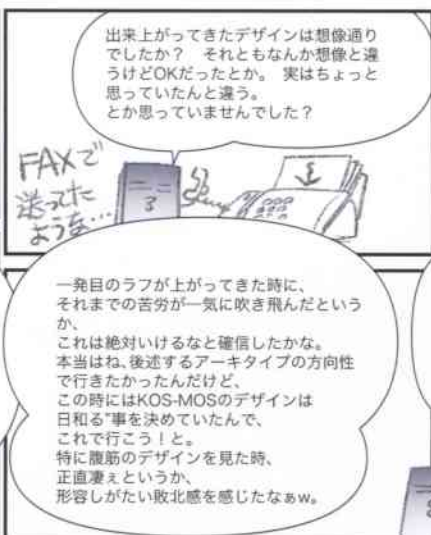 出来上がってきたデザインは想像通り
でしたか？　それともなんか想像と違
うけどOKだったとか。　実はちょっと
思っていたんと違う。
とか思っていませんでした？
FAXで
送ってた
ような…
一発目のラフが上がってきた時に、
それまでの苦労が一気に吹き飛んだという
か、
これは絶対いけるなと確信したかな。
本当はね、後述するアーキタイプの方向性
で行きたかったんだけど、
この時にはKOS-MOSのデザインは
日和る"事を決めていたんで、
これで行こう！と。
特に腹筋のデザインを見た時、
正直凄ぇというか、
形容しがたい敗北感を感じたなぁw。